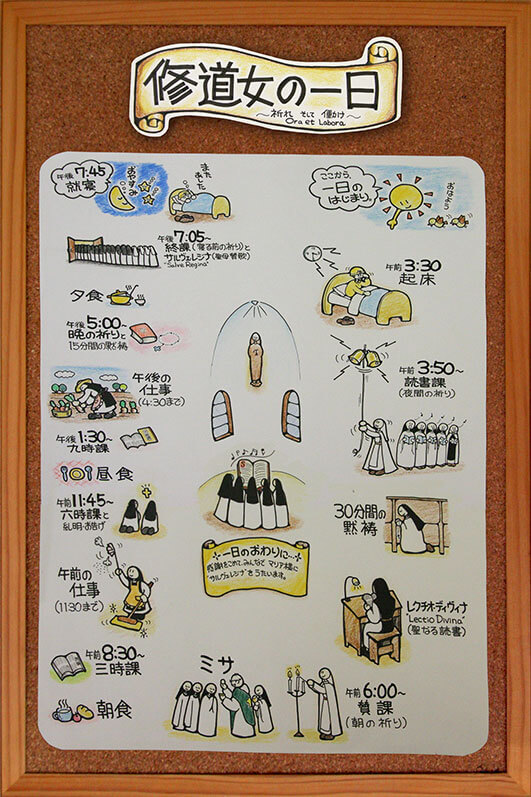 修道女の一日
～祈れ そして 働け～
Ora et Labora
ここから、
一日の
はじまり。
おはよう
午前 3:30
起床
午前 3:50～
読書課
(夜間の祈り)
30分間の
黙祷
レクチオ・ディヴィナ
"Lectio Divina"
(聖なる読書)
午前 6:00～
賛課
(朝の祈り)
ミサ
朝食
午前 8:30～
三時課
午前の
仕事
(11:30まで)
午前 11:45～
六時課と
糺明・お告げ
昼食
午後 1:30～
九時課
午後の
仕事
(4:30まで)
午後 5:00～
晩の祈りと
15分間の黙祷
夕食
午後 7:05～
終課(寝る前の祈り)と
サルヴェレジナ(聖母賛歌)
"Salve Regina"
午後 7:45
就寝
おやすみ
またあした
一日のおわりに…
感謝をこめて、みんなで マリア様に
"サルヴェレジナ"を うたいます。